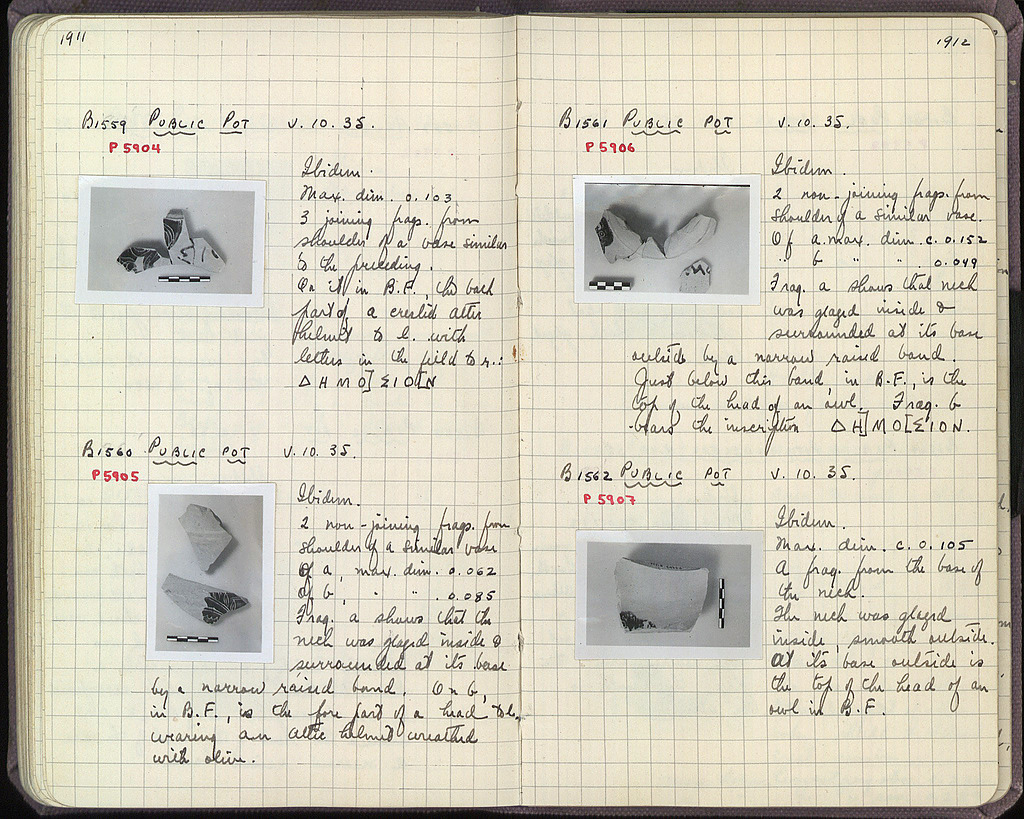 1911
B1559 PUBLIC POT V. 10. 35.
P 5904
Ibidem.
Max. dim. 0.103
3 joining frags. from
shoulder of a vase similar
to the preceding.
On it in B.F., the back
part of a crested attic
helmet to l. with
letters in the field to r.:
ΔΗΜΟ]ΣΙΟ[Ν
B1560 PUBLIC POT V. 10. 35.
P 5905
Ibidem.
2 non-joining frags. from
shoulder of a similar vase
Of a, max. dim. 0.062
Of b, " " 0.085
Frag. a shows that the
neck was glazed inside &
surrounded at its base
by a narrow raised band. On b,
in B.F., is the fore part of a head to l.,
wearing an attic helmet wreathed
with olive.
1912
B1561 PUBLIC POT V. 10. 35.
P 5906
Ibidem.
2 non-joining frags. from
shoulder of a similar vase.
Of a max. dim. c. 0.152
" b " " 0.049
Frag. a shows that neck
was glazed inside &
surrounded at its base
outside by a narrow raised band.
Just below this band, in B.F., is the
top of the head of an owl. Frag. b
bears the inscription ΔΗ]ΜΟ[ΣΙΟΝ.
B1562 PUBLIC POT V. 10. 35.
P 5907
Ibidem.
Max. dim. c. 0.105
A frag. from the base of
the neck.
The neck was glazed
inside, smooth outside.
At its base outside is
the top of the head of an
owl in B.F.